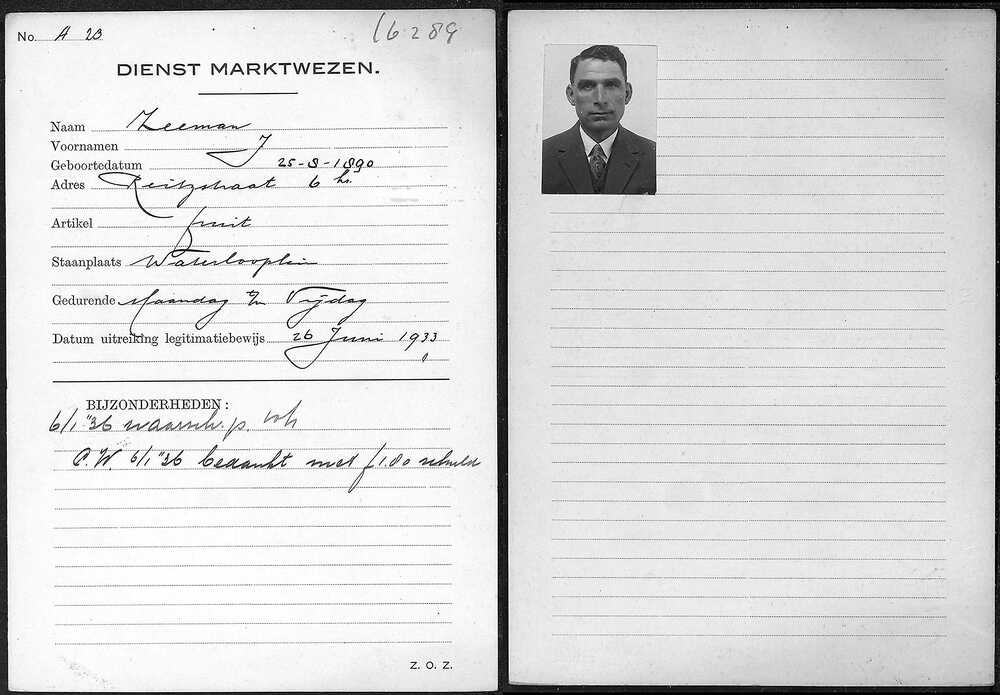 No. A 23
16289
DIENST MARKTWEZEN.
Naam Zeeman
Voornamen J
Geboortedatum 25-8-1890
Adres Reitzstraat 6 hs.
Artikel fruit
Staanplaats Waterlooplein
Gedurende Maandag t/m Vrijdag
Datum uitreiking legitimatiebewijs 26 Juni 1933
BIJZONDERHEDEN:
6/1 "36 waarsch. p.
C.W 6/1 "36 bedankt met f 1.80 schuld
Z. O. Z.